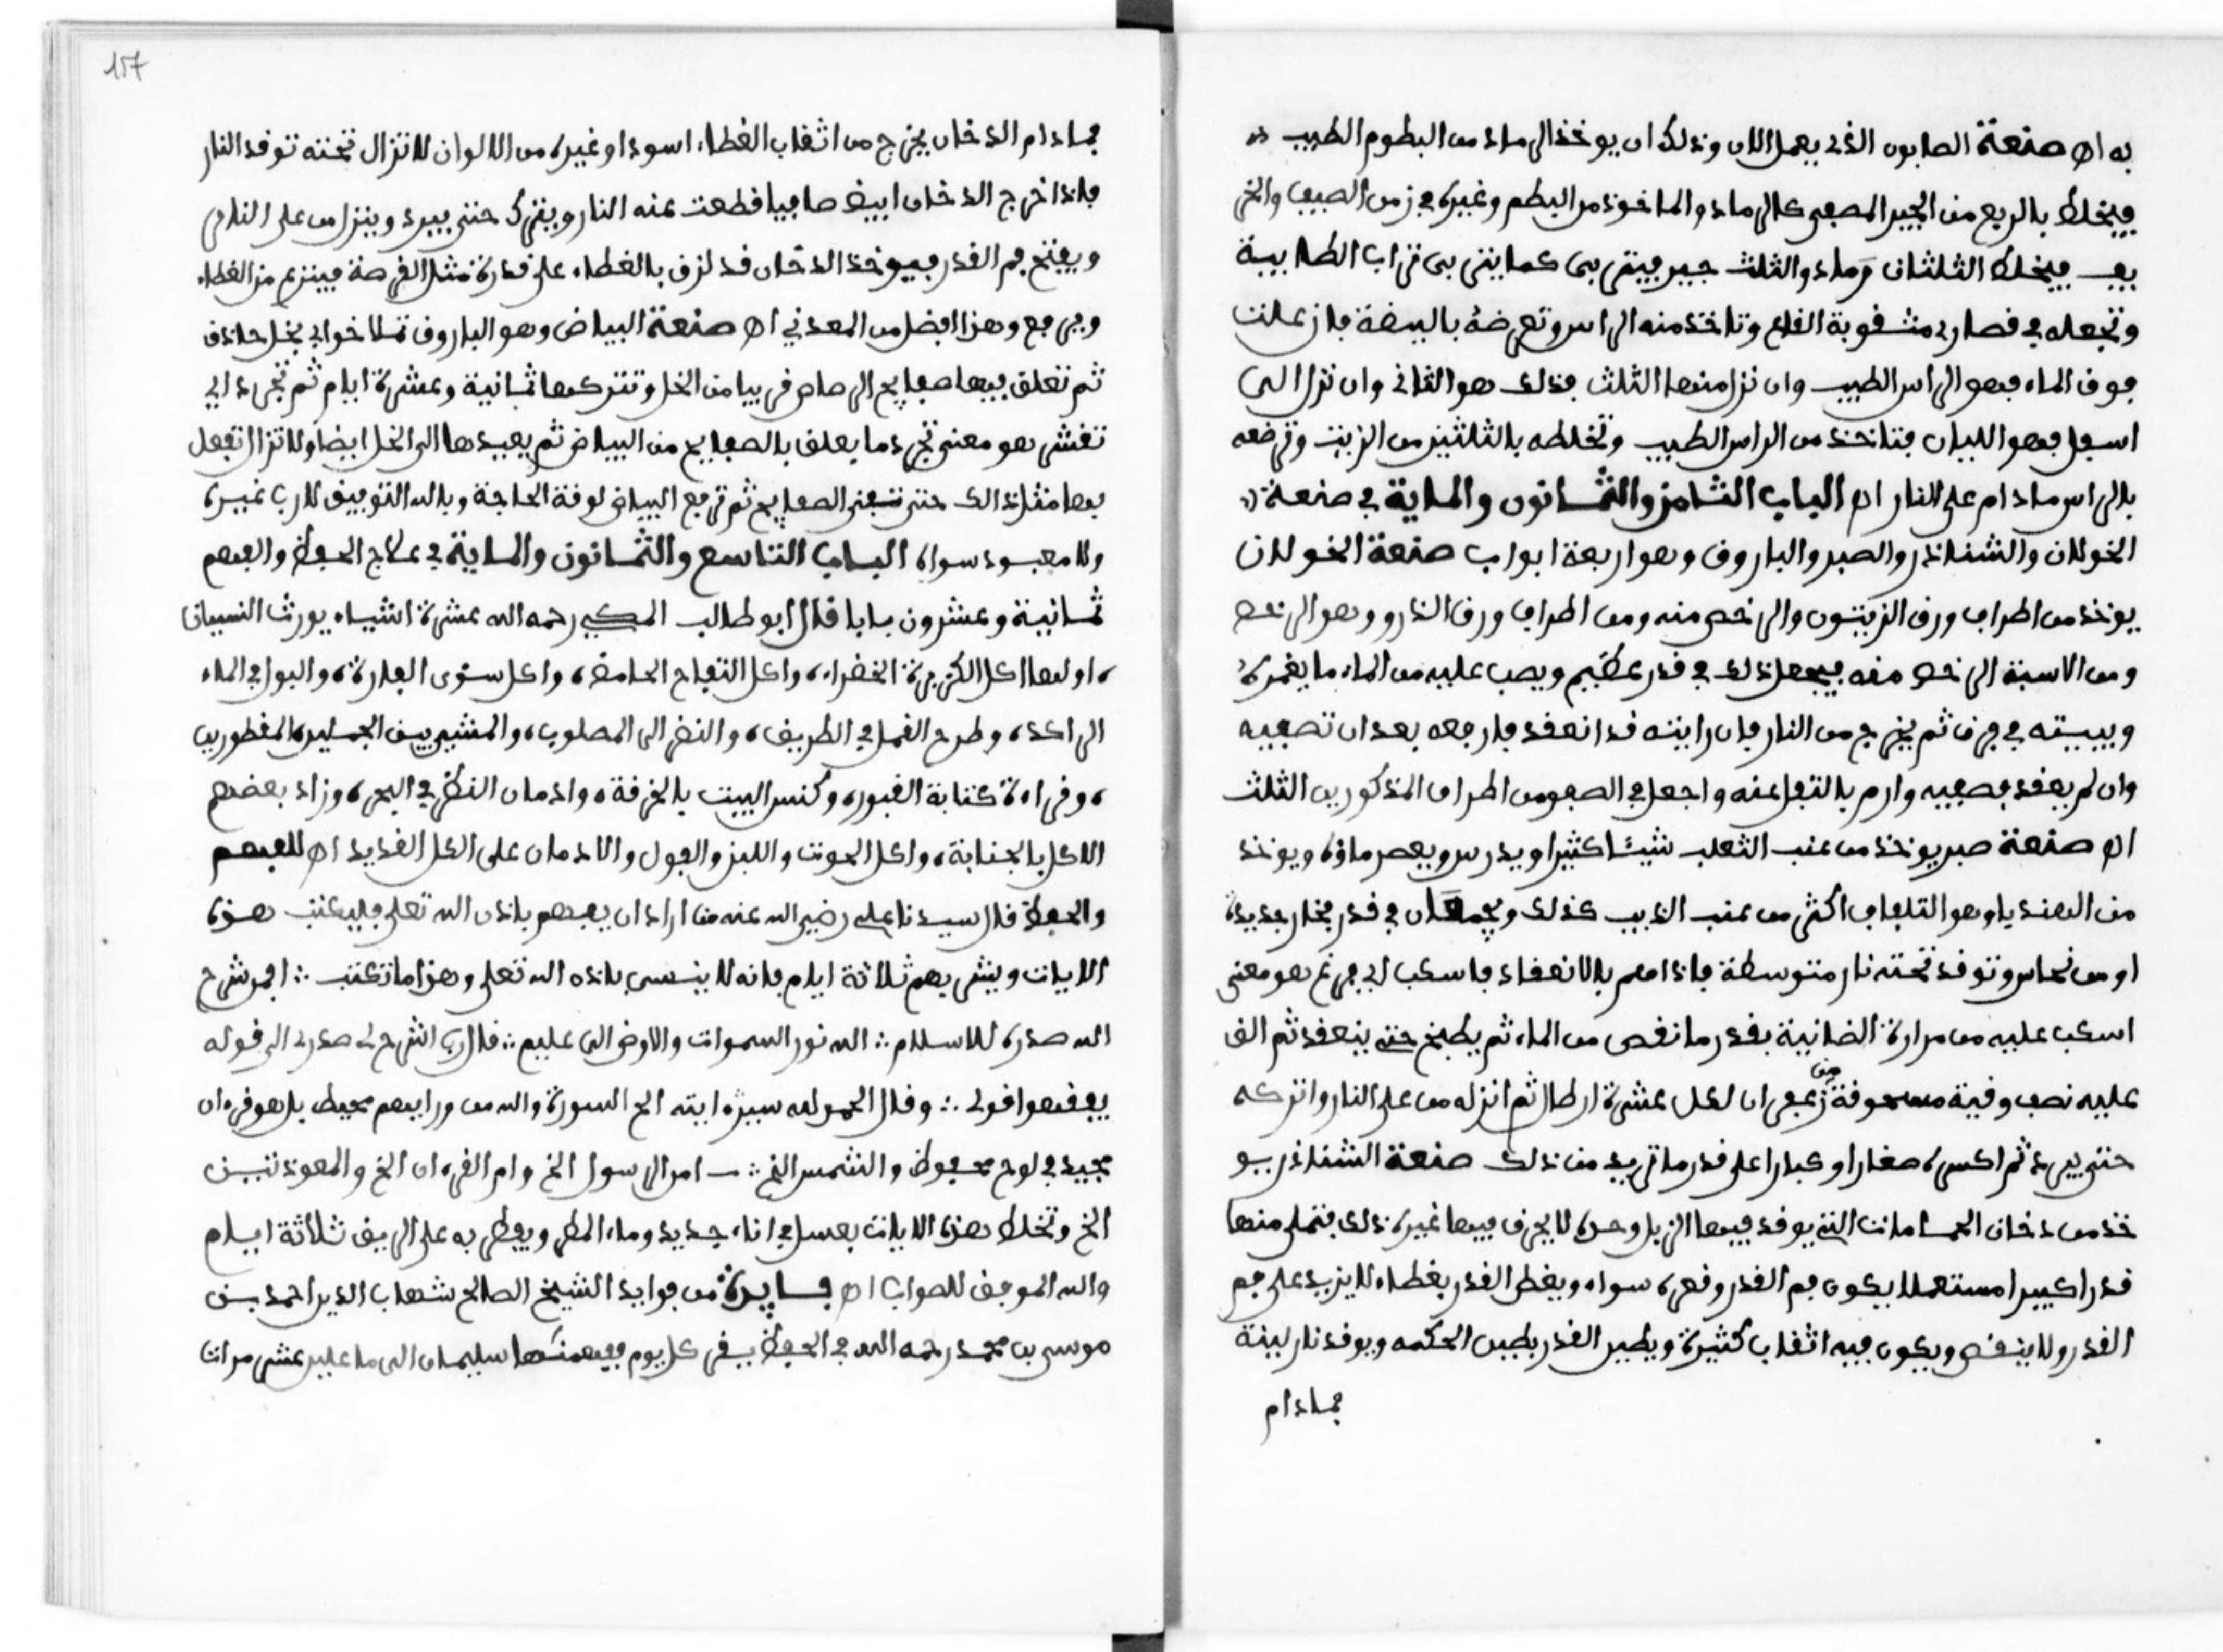 به اه صنعة الصابون الذي يعمل الان وذلك ان يوخذ الرماد من البطوم الطيب
فيخلط بالربع من الجير المصفى كالرماد والماخوذ من البطم وغيره في زمن الصيف والخر
يف فيخلط الثلثان رماد والثلث جير فيتربى كما يتربى تراب الطابية
وتجعله في قصارى مثقوبة القاع وتاخذ منه الراس وتعرضه بالبيضة فان علت
فوق الماء فهو الراس الطيب وان نزل منها الثلث فذلك هو الثاني وان نزل الى
اسفل فهو اللبان فتاخذ من الراس الطيب وتخلطه بالثلثين من الزيت وترضعه
بالراس مادام على النار اه الباب الثامن والثمانون والماية في صنعة
الخولان والشناذر والصبر والباروق وهو اربعة ابواب صنعة الخولان
يوخذ من اطراف ورق الزيتون والرخص منه ومن اطراف ورق الذرو وهو الرخص
ومن الاسبة الرخص منه فيجعل ذلك في قدر عظيم ويصب عليه من الماء ما يغمره
ويبيته في فرن ثم يخرج من النار فان رايته قد انعقد فارفعه بعد ان تصفيه
وان لم يعقد فصفيه وارم بالتفل عنه واجعل في الصفو من اطراف المذكورين الثلث
اه صنعة صبر يوخذ من عنب الثعلب شيئا كثيرا ويدرس ويعصر ماؤه ويوخذ
من الهنديا وهو التلفاف اكثر من عنب الذيب كذلك ويجمعان في قدر فخار جديدة
او من نحاس وتوقد تحته نار متوسطة فاذا هم بالانعقاد فاسكب اي فرغ هو معنى
اسكب عليه من مرارة الضانية بقدر ما نقص من الماء ثم يطبخ حتى ينعقد ثم الق
عليه نصف وقية مسحوقة من زعفران لكل عشرة ارطال ثم انزله من على النار واتركه
حتى يبرد ثم اكسره صغارا او كبارا على قدر ما تريد من ذلك صنعة الشناذر يو
خذ من دخان الحمامات التي يوقد فيها الزبل وحده لا يحرق فيها غيره ذلك فتملى منها
قدرا كبيرا مستعملا يكون فم القدر وقعره سواء ويغطى القدر بغطاء لا يزيد على فم
القدر ولا ينقص ويكون فيه اثقاب كثيرة ويطين القدر بطين الحكمه ويوقد نار لينة
فمادام
157
فمادام الدخان يخرج من اثقاب الغطاء اسود او غيره من الالوان لا تزال تحته توقد النار
فاذا خرج الدخان ابيض صافيا قطعت عنه النار ويترك حتى يبرد وينزل من على النار
ويفتح فم القدر فيوخذ الدخان قد لزق بالغطاء على قدره مثل القرصة فينزع من الغطاء
ويرفع وهذا افضل من المعدني اه صنعة البياض وهو الباروق تملا خوابي بخل حاذق
ثم تعلق فيها صفايح الرصاص قريبا من الخل وتتركها ثمانية وعشرة ايام ثم تجرد اي
تقشر هو معنى تجرد ما يعلق بالصفايح من البياض ثم يعيدها الى الخل ايضا ولا تزال تفعل
بها مثل ذالك حتى تفنى الصفايح ثم ترفع البياض لوقة الحاجة وبالله التوفيق لا رب غيره
ولا معبود سواه الباب التاسع والثمانون والماية في علاج الحفظ والفهم
ثمانية وعشرون بابا قال ابو طالب المكي رحمه الله عشرة اشياء يورث النسيان
اولها اكل الكزبرة الخضراء، واكل التفاح الحامض، واكل سؤر الفارة، والبول في الماء
الراكد، وطرح القمل في الطريق، والنظر الى المصلوب، والمشي بين الجملين المقطورين
، وقراءة كتابة القبور، وكنس البيت بالخرقة، وادمان النظر في البحر، وزاد بعضهم
الاكل بالجنابة، واكل الحوت واللبن والفول والادمان على اكل القديد اه للفهم
والحفظ قال سيدنا علي رضي الله عنه من اراد ان يفهم باذن الله تعلى فليكتب هذه
الايات ويشربهم ثلاثة ايام فانه لا ينسى باذنه الله تعلى وهذا ما تكتب ∴ افمن شرح
الله صدره للاسلام ∴ الله نور السموات والارض الى عليم ∴ قال رب اشرح لي صدري الى قوله
يفقهوا قولي ∴ وقل الحمد لله سيريكم ايته الخ السورة والله من ورايهم محيط بل هو قرءان
مجيد في لوح محفوظ والشمس الخ ∴ امن الرسول الخ وام القرءان الخ والمعوذتين
الخ وتخلط هذه الايات بعسل في اناء جديد وماء المطر ويفطر به على الريق ثلاثة ايام
والله الموفق للصواب اه فايدة من فوايد الشيخ الصالح شهاب الدين احمد بن
موسى بن محمد رحمه الله في الحفظ يقرى كل يوم ففهمنها سليمان الى ما علين عشر مرات